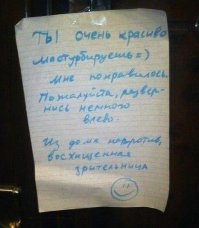 ТЫ очень красиво
мастурбируешь =)
Мне понравилось.
Пожалуйста, развер-
нись немного
влево.
Из дома напротив,
восхищенная
зрительница